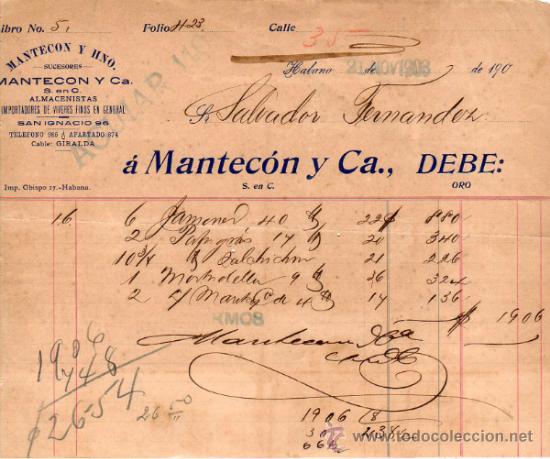 Libro No. 5, Folio 423 Calle
35
MANTECON Y HNO.
SUCESORES
MANTECON Y Ca.
S. en C.
ALMACENISTAS
IMPORTADORES DE VIVERES FINOS EN GENERAL
SAN IGNACIO 96
TELEFONO 286 á APARTADO 874
Cable: GIRALDA
Habana 21 NOV 1903 de de 190
Sr. Salvador Fernandez
á Mantecón y Ca., DEBE:
S. en C. ORO
Imp. Obispo 17.-Habana.
16 6 Jamones 40 22 880
2 Patagrás 17 20 340
10 3/4 Salchichon 21 226
1 Mortadella 9 36 324
2 de 4 17 136
$ 1906
Mantecon y Ca
1906
748
2654
26 50
1906 18
30
666
todocoleccion.net